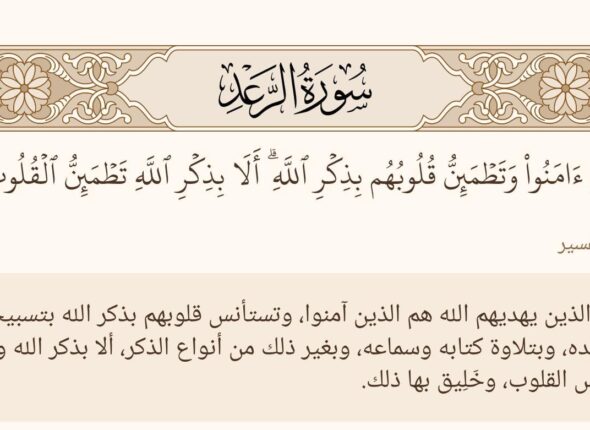 سُورَةُ الرَّعْدِ
ءَامَنُوا۟ وَتَطْمَئِنُّ قُلُوبُهُم بِذِكْرِ ٱللَّهِ ۗ أَلَا بِذِكْرِ ٱللَّهِ تَطْمَئِنُّ ٱلْقُلُوب
سير
الذين يهديهم الله هم الذين آمنوا، وتستأنس قلوبهم بذكر الله بتسبيح
ده، وبتلاوة كتابه وسماعه، وبغير ذلك من أنواع الذكر، ألا بذكر الله و
س القلوب، وخَلِيق بها ذلك.